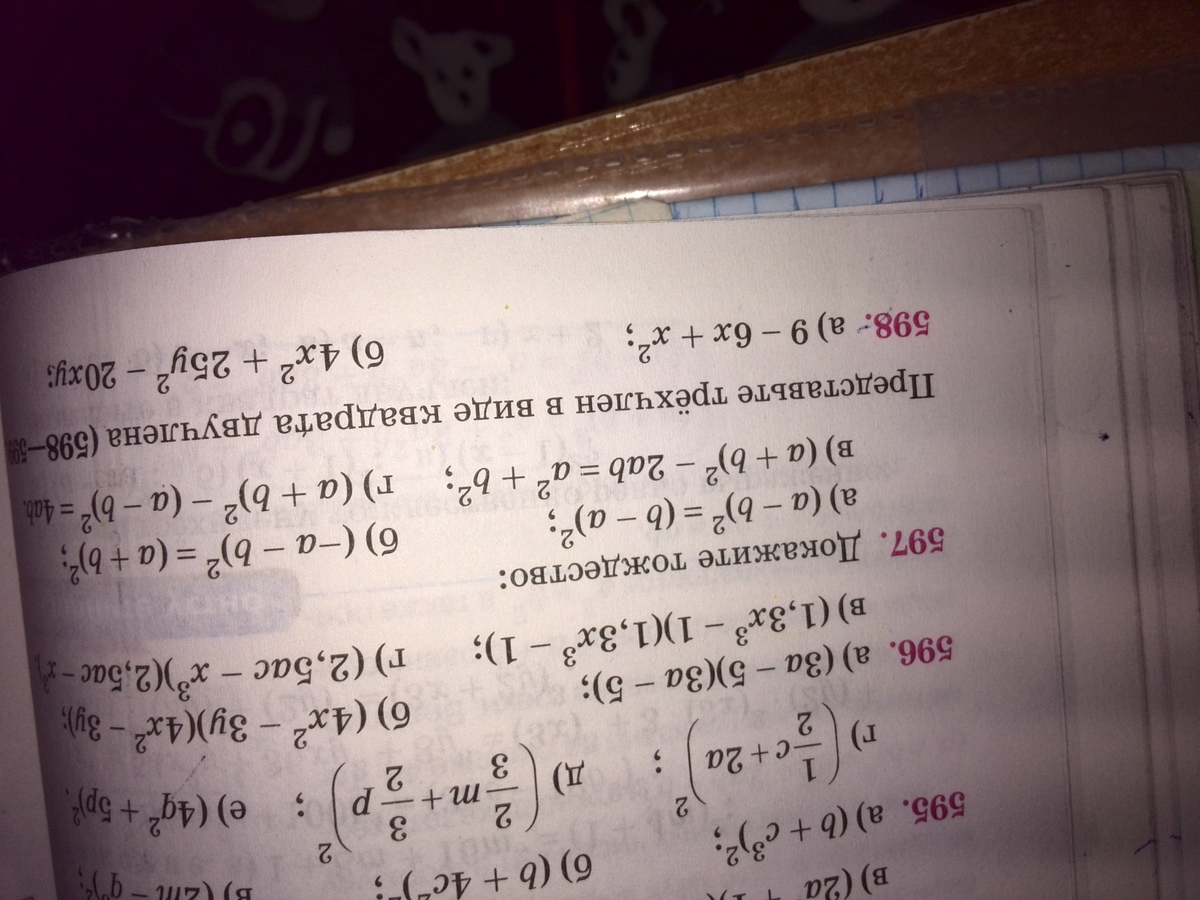 в) (2a
595. а) (b + c³)²; б) (b + 4c
г) (1/2 c + 2a)²; д) (2/3 m + 3/2 p)²; е) (4q² + 5p)².
596. а) (3a – 5)(3a – 5); б) (4x² – 3y)(4x² – 3y);
в) (1,3x³ – 1)(1,3x³ – 1); г) (2,5ac – x³)(2,5ac – x³
597. Докажите тождество:
а) (a – b)² = (b – a)²; б) (–a – b)² = (a + b)²;
в) (a + b)² – 2ab = a² + b²; г) (a + b)² – (a – b)² = 4ab.
Представьте трёхчлен в виде квадрата двучлена (598–599
598. а) 9 – 6x + x²; б) 4x² + 25y² – 20xy;